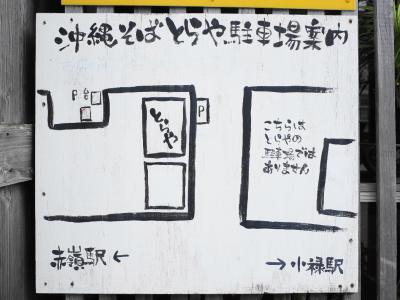 沖縄そば とらや駐車場案内
P 台
とらや
P
こちらは
とらやの
駐車場では
ありません
赤嶺駅 ←
→ 小禄駅